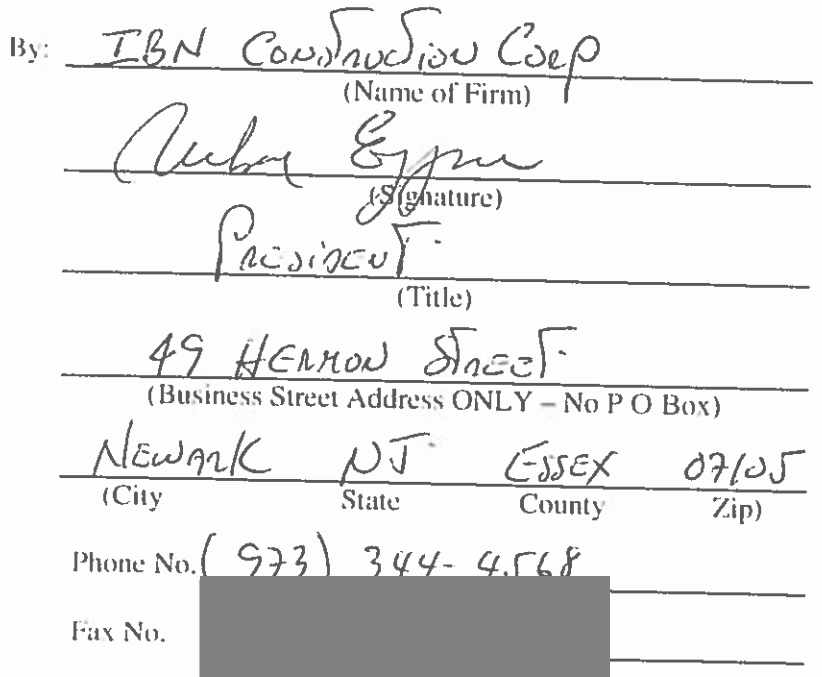 By: IBN Construction Corp
(Name of Firm)
(Signature)
President
(Title)
49 Hermon Street
(Business Street Address ONLY – No P O Box)
Newark NJ Essex 07105
(City State County Zip)
Phone No. (973) 344-4568
Fax No.